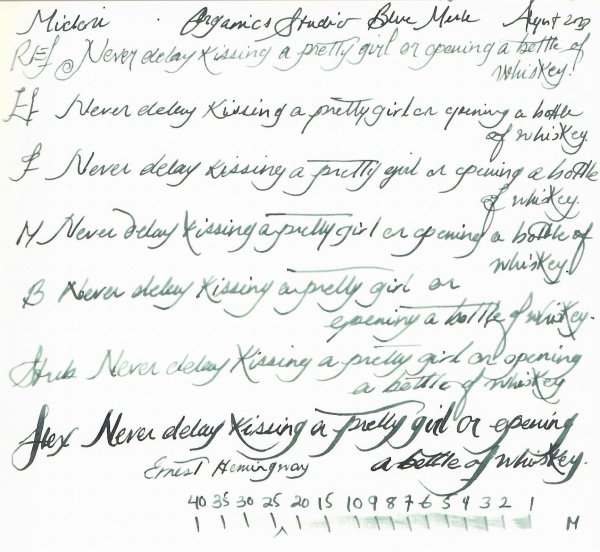 Midori Organics Studio Blue Merle August 2023
Ref Never delay kissing a pretty girl or opening a bottle of
whiskey!
Ef Never delay kissing a pretty girl or opening a bottle
of whiskey.
F Never delay kissing a pretty girl or opening a bottle
of whiskey.
M Never delay kissing a pretty girl or opening a bottle of
whiskey.
B Never delay kissing a pretty girl or
opening a bottle of whiskey.
Stub Never delay kissing a pretty girl or opening
a bottle of whiskey
Flex Never delay kissing a pretty girl or opening
a bottle of whiskey.
Ernest Hemingway
40 35 30 25 20 15 10 9 8 7 6 5 4 3 2 1
M